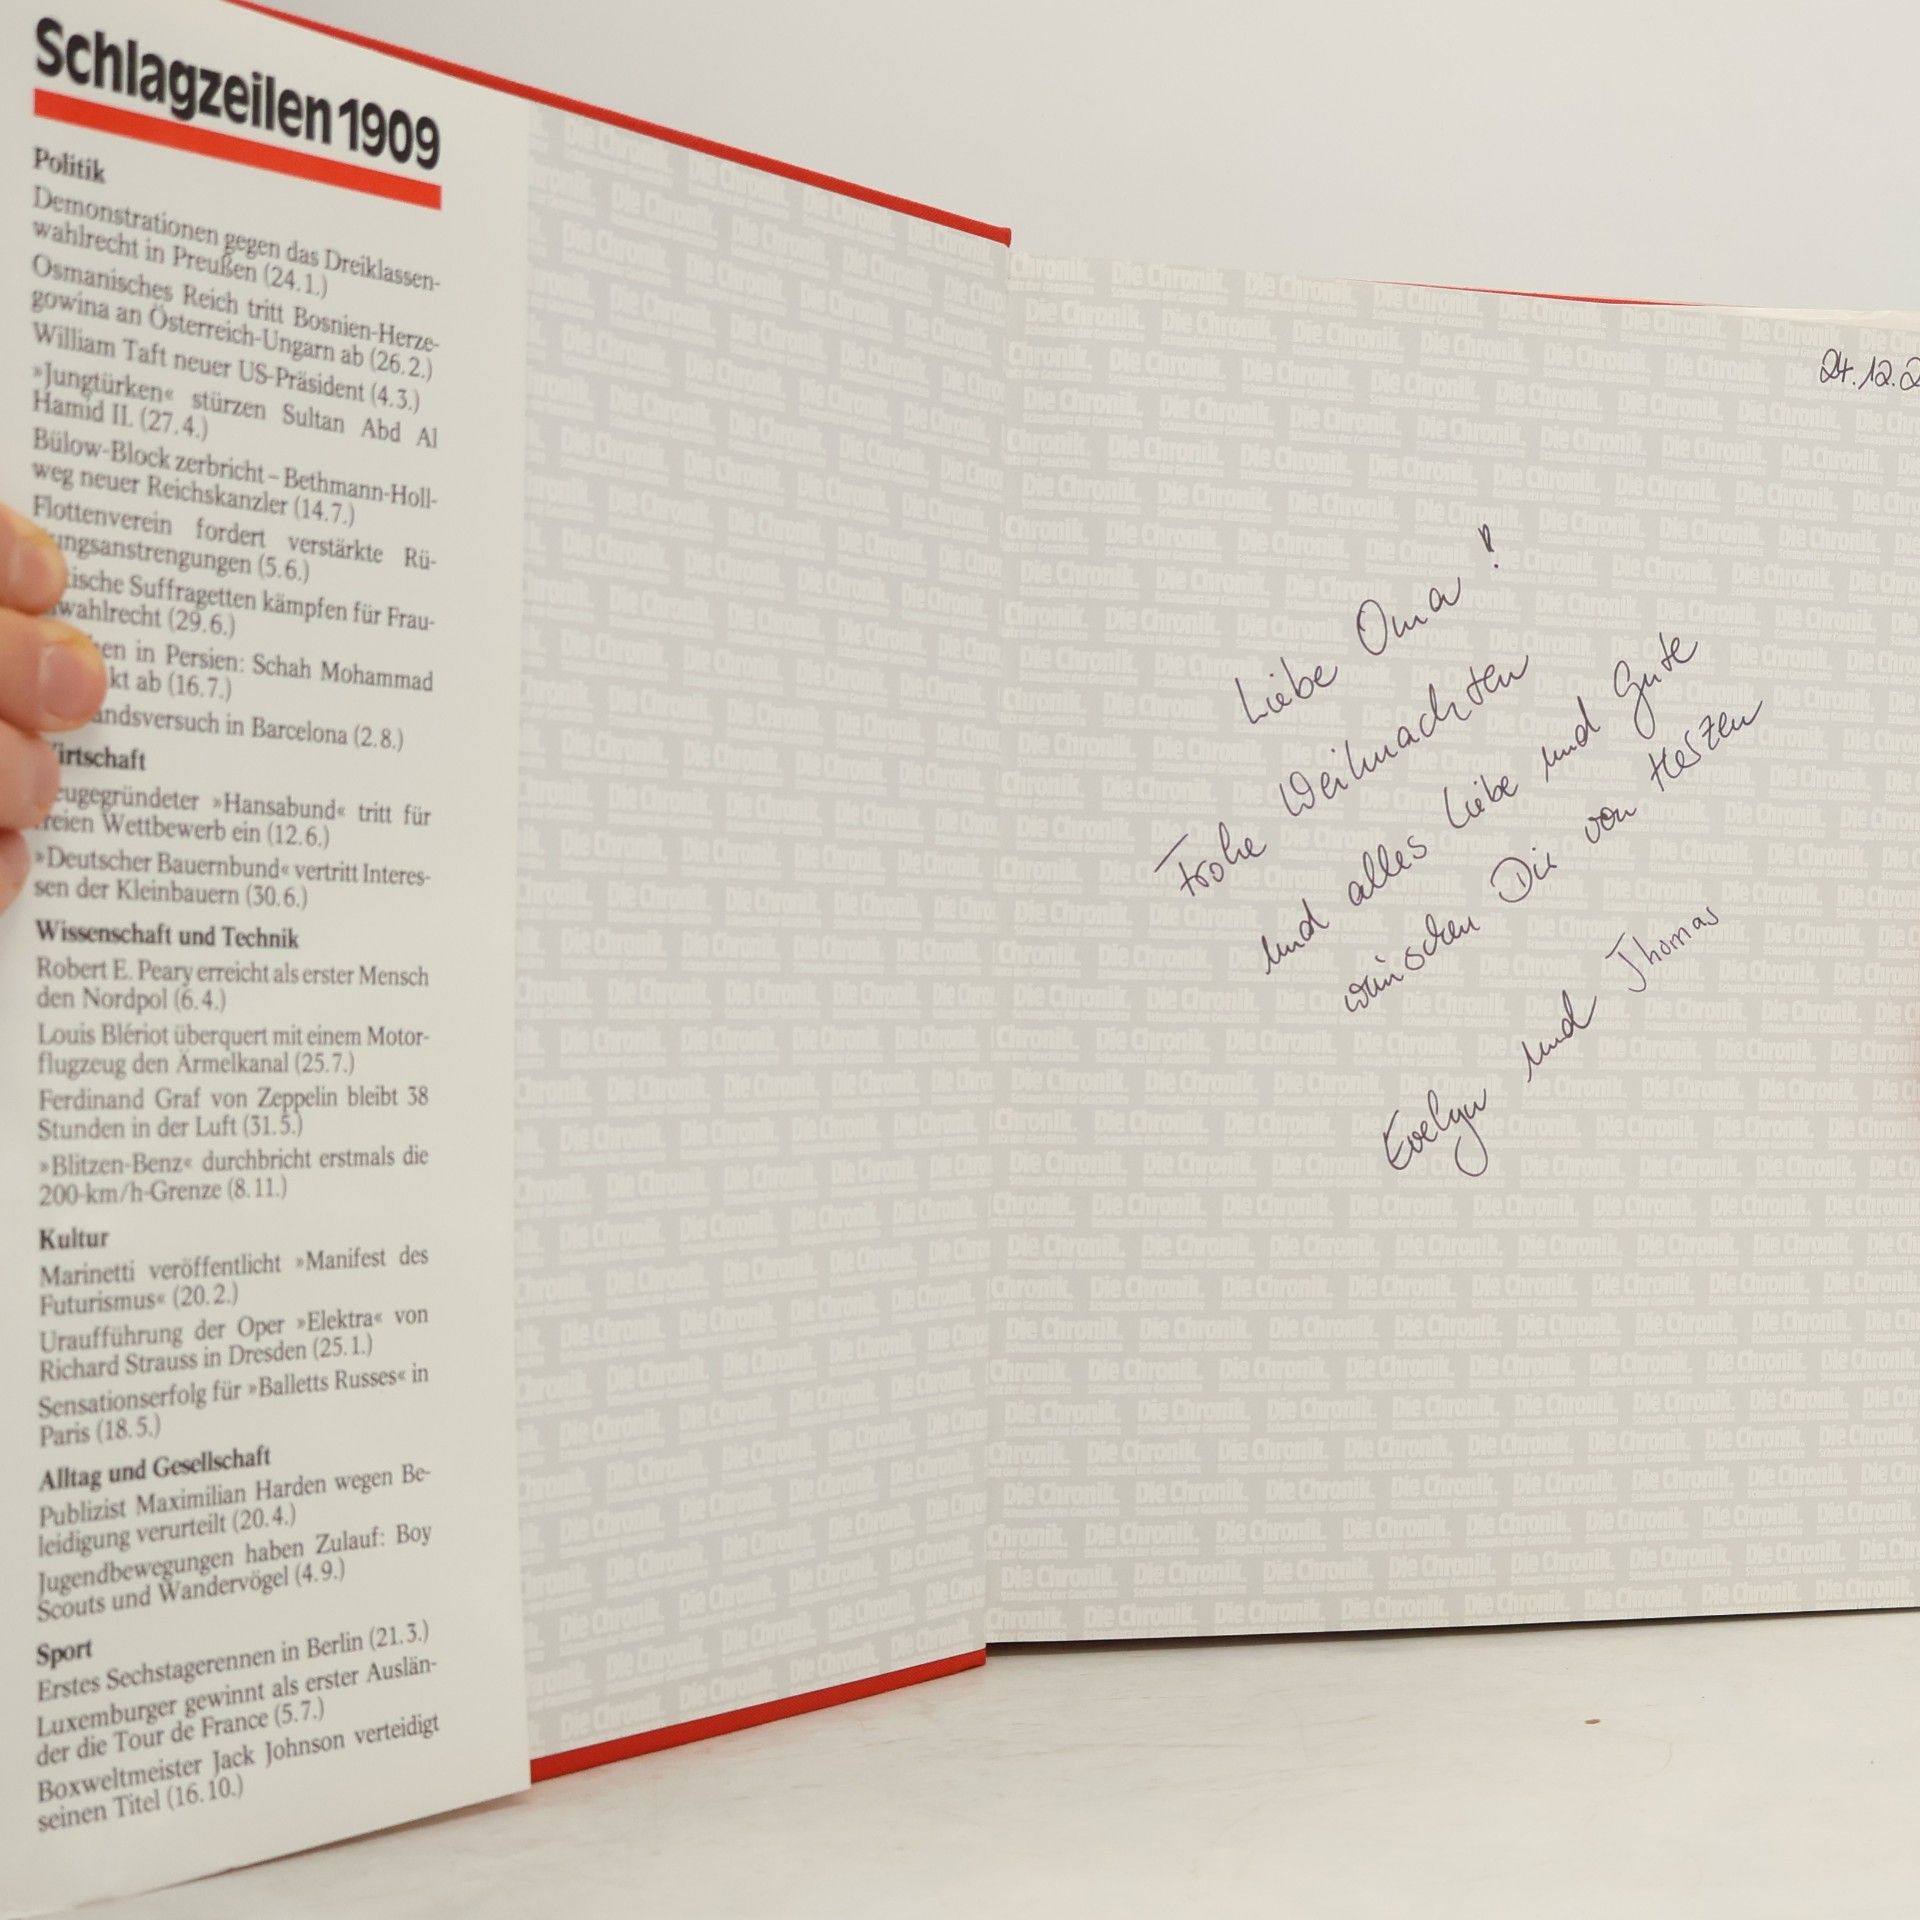 Schlagzeilen 1909
Politik
Demonstrationen gegen das Dreiklassen-
wahlrecht in Preußen (24.1.)
Osmanisches Reich tritt Bosnien-Herze-
gowina an Österreich-Ungarn ab (26.2.)
William Taft neuer US-Präsident (4.3.)
»Jungtürken« stürzen Sultan Abd Al
Hamid II. (27.4.)
Bülow-Block zerbricht – Bethmann-Holl-
weg neuer Reichskanzler (14.7.)
Flottenverein fordert verstärkte Rü-
ungsanstrengungen (5.6.)
tische Suffragetten kämpfen für Frau-
wahlrecht (29.6.)
en in Persien: Schah Mohammad
kt ab (16.7.)
andsversuch in Barcelona (2.8.)
irtschaft
eugegründeter »Hansabund« tritt für
reien Wettbewerb ein (12.6.)
»Deutscher Bauernbund« vertritt Interes-
sen der Kleinbauern (30.6.)
Wissenschaft und Technik
Robert E. Peary erreicht als erster Mensch
den Nordpol (6.4.)
Louis Blériot überquert mit einem Motor-
flugzeug den Ärmelkanal (25.7.)
Ferdinand Graf von Zeppelin bleibt 38
Stunden in der Luft (31.5.)
»Blitzen-Benz« durchbricht erstmals die
200-km/h-Grenze (8.11.)
Kultur
Marinetti veröffentlicht »Manifest des
Futurismus« (20.2.)
Uraufführung der Oper »Elektra« von
Richard Strauss in Dresden (25.1.)
Sensationserfolg für »Balletts Russes« in
Paris (18.5.)
Alltag und Gesellschaft
Publizist Maximilian Harden wegen Be-
leidigung verurteilt (20.4.)
Jugendbewegungen haben Zulauf: Boy
Scouts und Wandervögel (4.9.)
Sport
Erstes Sechstagerennen in Berlin (21.3.)
Luxemburger gewinnt als erster Auslän-
der die Tour de France (5.7.)
Boxweltmeister Jack Johnson verteidigt
seinen Titel (16.10.)
24.12.2
Liebe Oma!
Frohe Weihnachten
und alles Liebe und Gute
wünschen Dir von Herzen
Evelyn und Thomas
Die Chronik.
Schauplatz der Geschichte